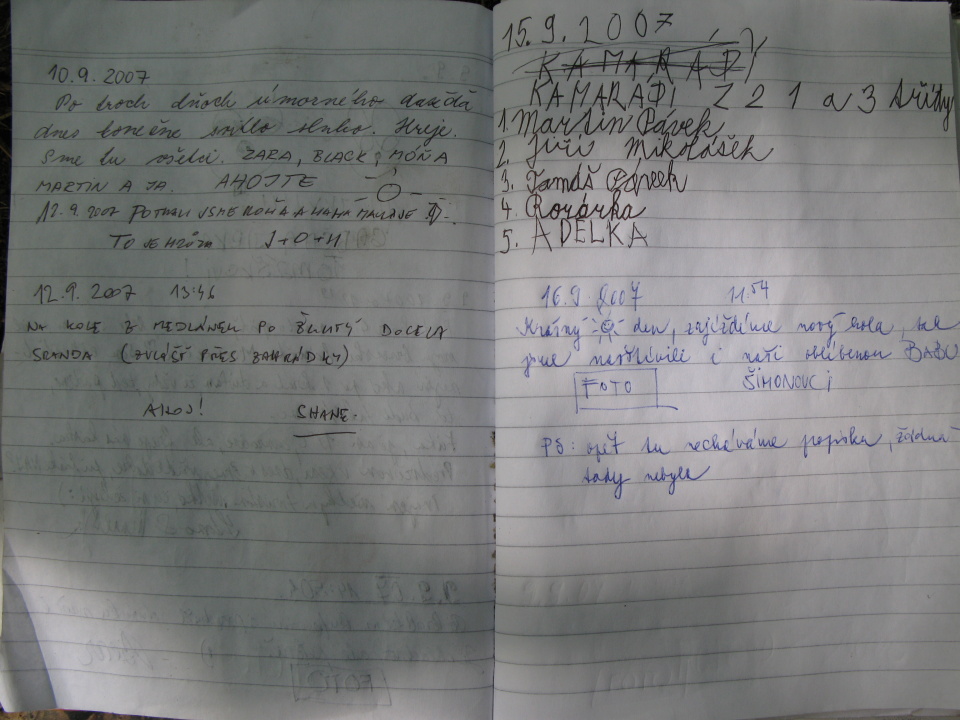 10.9.2007
Po troch dňoch úmorného dažďa
dnes konečne svitlo slnko. Hreje.
Sme tu všetci. ZARA, BLACK, MÓŇA
MARTIN A JA. AHOJTE
12.9.2007 POTKALI JSME KOŇA A HANA MALUJE
TO JE HRŮZA J+O+H
12.9.2007 13:46
NA KOLE Z MEDLÁNEK PO ŽLUTÝ DOCELA
SRANDA (ZVLÁŠŤ PŘES ZAHRÁDKY)
AHOJ! SHANE.
15.9.2007
KAMARÁDI
KAMARÁDI Z 2 1 a 3 třídy
1. Martin Pávek
2. Jiří Mikolášek
3. Tomáš Pávek
4. Rozárka
5. ADELKA
16.9.2007 11:54
Krásný den, zajíždíme nový kola, tak
jsme navštívili i naši oblíbenou BABU
FOTO ŠIMONOVCI
PS: opět tu necháváme propisku, žádná
tady nebyla
FOTO